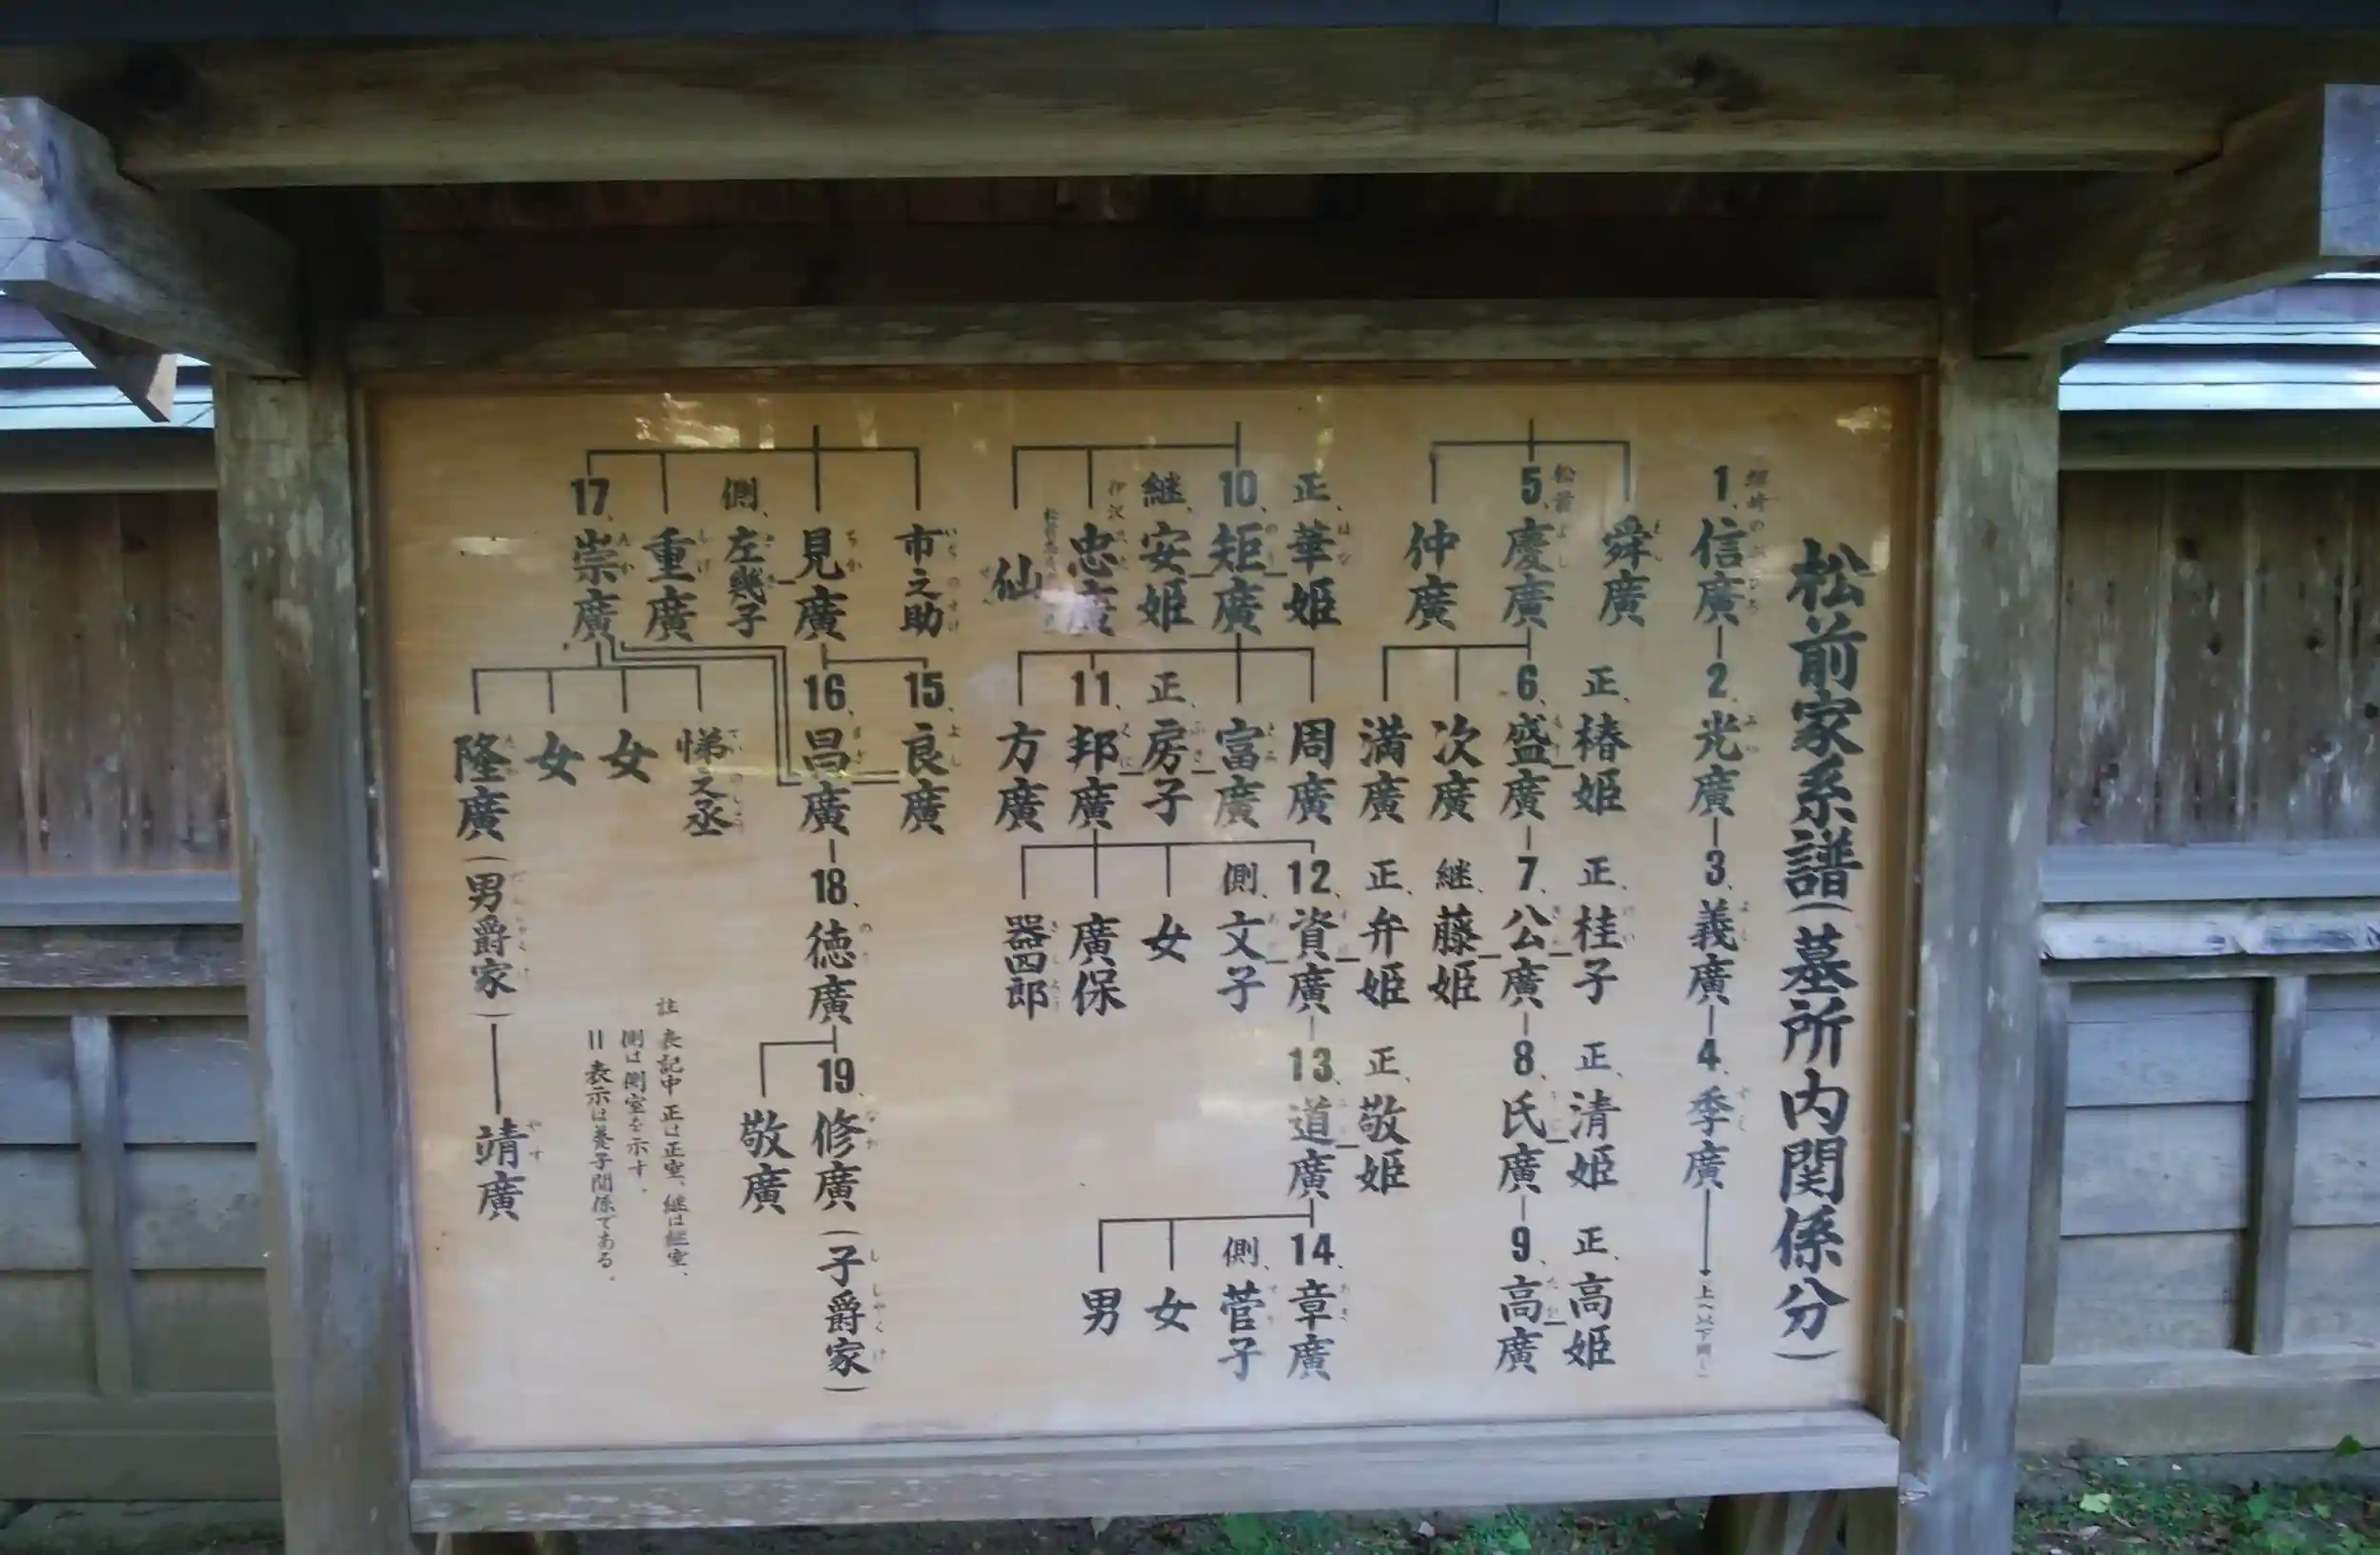 松前家系譜(墓所内関係分)
1、信廣
2、光廣
3、義廣
4、季廣
舜廣
松前
5、慶廣
仲廣
正、椿姫
6、盛廣
次廣
満廣
正、桂子
7、公廣
継、藤姫
正、清姫
8、氏廣
正、高姫
9、高廣
正、華姫
10、矩廣
継、安姫
忠廣
仙
周廣
富廣
正、房子
11、邦廣
方廣
正、弁姫
12、資廣
側、文子
女
廣保
器四郎
正、敬姫
13、道廣
14、章廣
側、菅子
女
男
市之助
見廣
側、左幾子
重廣
17、崇廣
15、良廣
16、昌廣
18、徳廣
19、修廣(子爵家)
敬廣
悌之丞
女
女
隆廣(男爵家)
靖廣
註 表記中正は正室、継は継室、
側は側室を示す。
|| 表示は養子関係である。